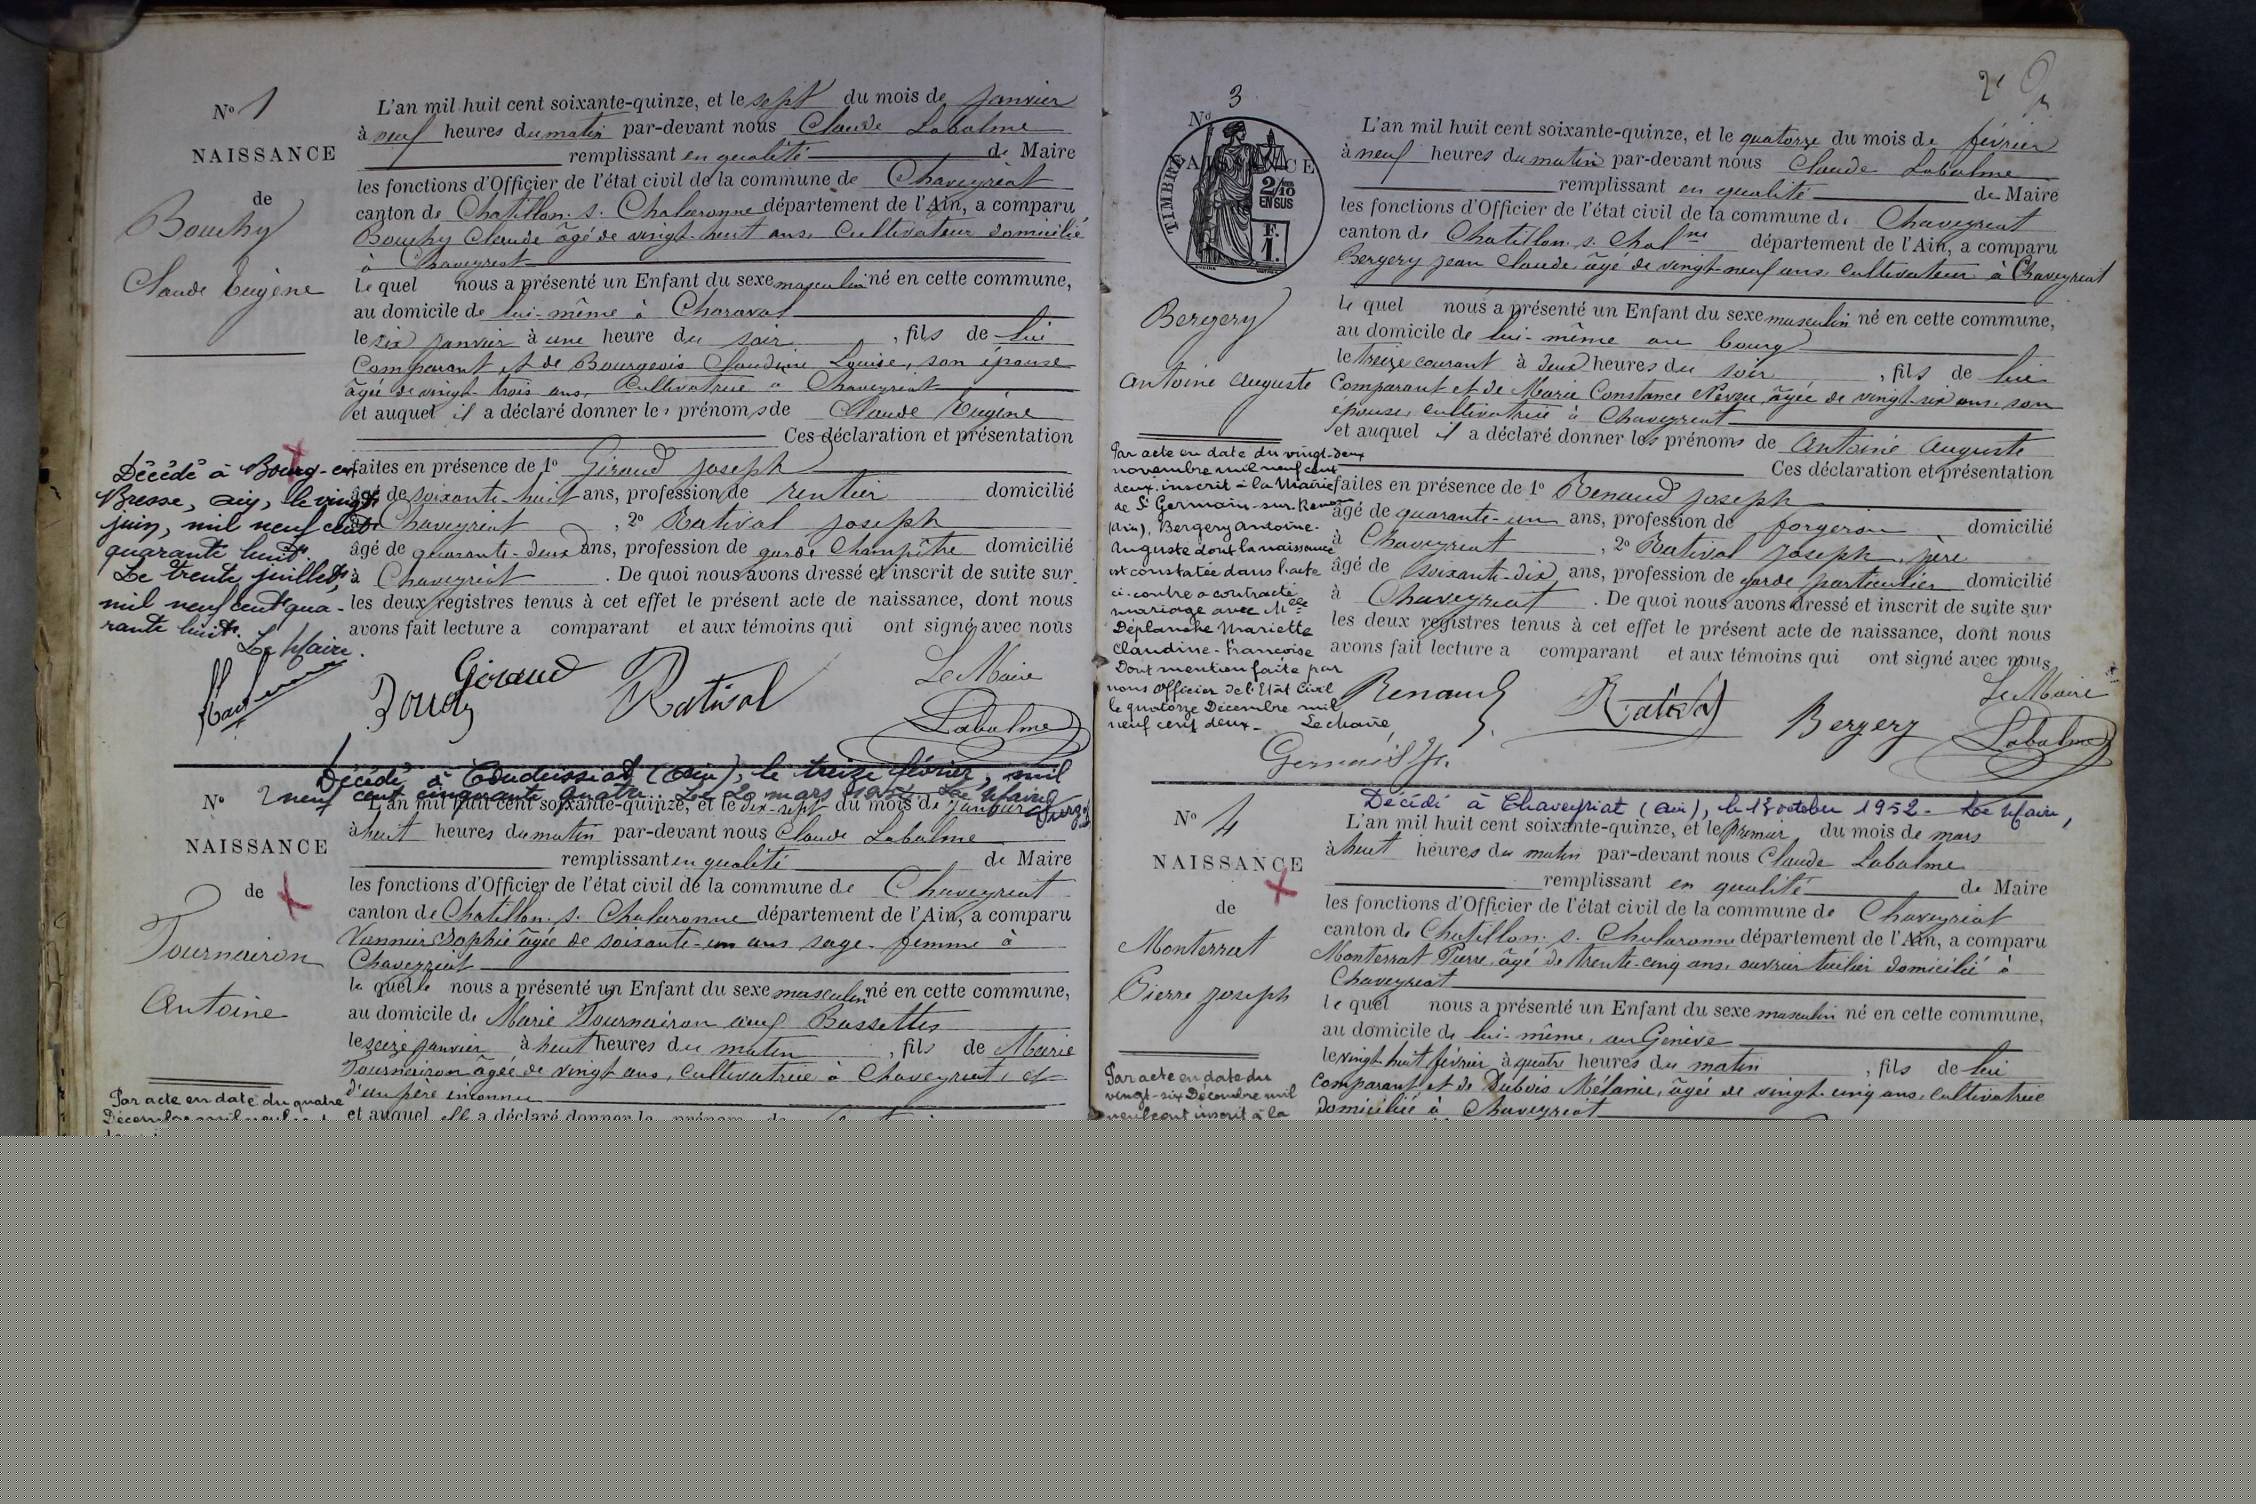 N° 1
NAISSANCE
de
Bouchy
Claude Eugène
L'an mil huit cent soixante-quinze, et le sept du mois de janvier
à neuf heures du matin par-devant nous Claude Labalme
remplissant en qualité de Maire
les fonctions d'Officier de l'état civil de la commune de Chaveyriat
canton de Chatillon s. Chalaronne département de l'Ain, a comparu
Bouchy Claude âgé de vingt-huit ans, Cultivateur domicilié
à Chaveyriat
le quel nous a présenté un Enfant du sexe masculin né en cette commune,
au domicile de lui-même à Charavat
le six janvier à une heure du soir, fils de lui
Comparant et de Bourgeois Claudine Louise, son épouse
âgée de vingt trois ans, Cultivatrice à Chaveyriat
et auquel il a déclaré donner les prénoms de Claude Eugène
Ces déclaration et présentation
faites en présence de 1° Giraud joseph
âgé de soixante-huit ans, profession de rentier domicilié
à Chaveyriat, 2° Rativol joseph
âgé de quarante-deux ans, profession de garde Champêtre domicilié
à Chaveyriat. De quoi nous avons dressé et inscrit de suite sur
les deux registres tenus à cet effet le présent acte de naissance, dont nous
avons fait lecture a comparant et aux témoins qui ont signé avec nous
Décédé à Bourg-en
Bresse, ain, le vingt
juin, mil neuf cent
quarante huit.
Le trente juillet
mil neuf cent qua-
rante huit.
Le Maire.
Giraud
Bouchy
Rativol
Le Maire
Labalme
Décédé à Condeissiat (Ain), le treize février, mil
neuf cent cinquante quatre. Le 20 mars 1954 Le Maire
N° 2
NAISSANCE
de
Tournairon
Antoine
L'an mil huit cent soixante-quinze, et le dix-sept du mois de janvier
à huit heures du matin par-devant nous Claude Labalme
remplissant en qualité de Maire
les fonctions d'Officier de l'état civil de la commune de Chaveyriat
canton de Chatillon s. Chalaronne département de l'Ain, a comparu
Vannier Sophie âgée de soixante-un ans sage-femme à
Chaveyriat
la quelle nous a présenté un Enfant du sexe masculin né en cette commune,
au domicile de Marie Tournairon aux Bassettes
le seize janvier à huit heures du matin, fils de Marie
Tournairon âgée de vingt ans, Cultivatrice à Chaveyriat, et
d'un père inconnu
et auquel elle a déclaré donner le prénom de
Par acte en date du quatre
Décembre mil neuf cent
2e
N° 3
NAISSANCE
TIMBRE
2/10
EN SUS
F.
1.
Bergery
Antoine Auguste
L'an mil huit cent soixante-quinze, et le quatorze du mois de février
à neuf heures du matin par-devant nous Claude Labalme
remplissant en qualité de Maire
les fonctions d'Officier de l'état civil de la commune de Chaveyriat
canton de Chatillon s. Chalne département de l'Ain, a comparu
Bergery jean Claude, âgé de vingt-neuf ans, Cultivateur à Chaveyriat
le quel nous a présenté un Enfant du sexe masculin né en cette commune,
au domicile de lui-même au bourg
le treize courant à deux heures du soir, fils de lui
Comparant et de Marie Constance Neveu âgée de vingt-six ans, son
épouse, cultivatrice à Chaveyriat
et auquel il a déclaré donner les prénoms de Antoine Auguste
Ces déclaration et présentation
faites en présence de 1° Renaud joseph
âgé de quarante-un ans, profession de forgeron domicilié
à Chaveyriat, 2° Rativol joseph, père
âgé de soixante-dix ans, profession de garde particulier domicilié
à Chaveyriat. De quoi nous avons dressé et inscrit de suite sur
les deux registres tenus à cet effet le présent acte de naissance, dont nous
avons fait lecture a comparant et aux témoins qui ont signé avec nous
Par acte en date du vingt-deux
novembre mil neuf cent
deux, inscrit à la Mairie
de St Germain-sur-Renon
(Ain), Bergery Antoine-
Auguste dont la naissance
est constatée dans l'acte
ci-contre a contracté
mariage avec Melle
Déplanche Mariette
Claudine-Françoise
Dont mention faite par
nous Officier de l'Etat Civil
le quatorze Décembre mil
neuf cent deux. Le Maire,
Renaud
Rativol
Bergery
Le Maire
Labalme
Décédé à Chaveyriat (Ain), le 13 octobre 1952. Le Maire,
N° 4
NAISSANCE
de
Monterrat
Pierre joseph
L'an mil huit cent soixante-quinze, et le premier du mois de mars
à huit heures du matin par-devant nous Claude Labalme
remplissant en qualité de Maire
les fonctions d'Officier de l'état civil de la commune de Chaveyriat
canton de Chatillon s. Chalaronne département de l'Ain, a comparu
Monterrat Pierre, âgé de trente-cinq ans, ouvrier tuilier domicilié à
Chaveyriat
le quel nous a présenté un Enfant du sexe masculin né en cette commune,
au domicile de lui-même, au Genève
le vingt-huit février à quatre heures du matin, fils de lui
comparant et de Dubois Mélanie, âgée de vingt-cinq ans, cultivatrice
domiciliée à Chaveyriat
Par acte en date du
vingt-six Décembre mil
neuf cent inscrit à la